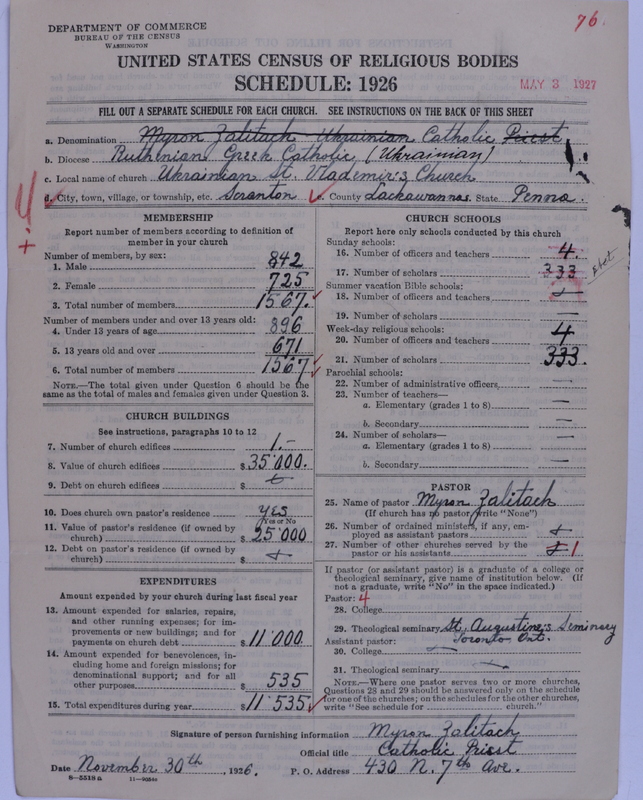 76.
DEPARTMENT OF COMMERCE
BUREAU OF THE CENSUS
WASHINGTON
UNITED STATES CENSUS OF RELIGIOUS BODIES
SCHEDULE: 1926
MAY 3 1927
FILL OUT A SEPARATE SCHEDULE FOR EACH CHURCH. SEE INSTRUCTIONS ON THE BACK OF THIS SHEET
a. Denomination Myron Zalitach Ukrainian Catholic Priest
b. Diocese Ruthenian Greek Catholic (Ukrainian)
c. Local name of church Ukrainian St. Vlademir's Church
d. City, town, village, or township, etc. Scranton e. County Lackawanna. State Penna.
MEMBERSHIP
Report number of members according to definition of
member in your church
Number of members, by sex:
1. Male 842
2. Female 725
3. Total number of members 1567.
Number of members under and over 13 years old:
4. Under 13 years of age 896
5. 13 years old and over 671
6. Total number of members 1567
NOTE.—The total given under Question 6 should be the
same as the total of males and females given under Question 3.
CHURCH BUILDINGS
See instructions, paragraphs 10 to 12
7. Number of church edifices 1.-
8. Value of church edifices $35'000.
9. Debt on church edifices $
10. Does church own pastor's residence yes
Yes or No
11. Value of pastor's residence (if owned by
church) $25'000
12. Debt on pastor's residence (if owned by
church) $
EXPENDITURES
Amount expended by your church during last fiscal year
13. Amount expended for salaries, repairs,
and other running expenses; for im-
provements or new buildings; and for
payments on church debt $11'000
14. Amount expended for benevolences, in-
cluding home and foreign missions; for
denominational support; and for all
other purposes $535
15. Total expenditures during year $11'535
CHURCH SCHOOLS
Report here only schools conducted by this church
Sunday schools:
16. Number of officers and teachers 4.
17. Number of scholars 333
Summer vacation Bible schools:
18. Number of officers and teachers
19. Number of scholars —
Week-day religious schools:
20. Number of officers and teachers 4
21. Number of scholars 333.
Parochial schools:
22. Number of administrative officers —
23. Number of teachers—
a. Elementary (grades 1 to 8) —
b. Secondary —
24. Number of scholars—
a. Elementary (grades 1 to 8) —
b. Secondary —
PASTOR
25. Name of pastor Myron Zalitach
(If church has no pastor, write "None")
26. Number of ordained ministers, if any, em-
ployed as assistant pastors
27. Number of other churches served by the
pastor or his assistants 1
If pastor (or assistant pastor) is a graduate of a college or
theological seminary, give name of institution below. (If
not a graduate, write "No" in the space indicated.)
Pastor: 4
28. College
29. Theological seminary St. Augustine's Seminary
Toronto Ont.
Assistant pastor:
30. College
31. Theological seminary
NOTE.—Where one pastor serves two or more churches,
Questions 28 and 29 should be answered only on the schedule
for one of the churches; on the schedules for the other churches,
write "See schedule for church."
Signature of person furnishing information Myron Zalitach
Official title Catholic Priest
Date November 30th, 1926. P. O. Address 430 N. 7th Ave.
8—5518 a